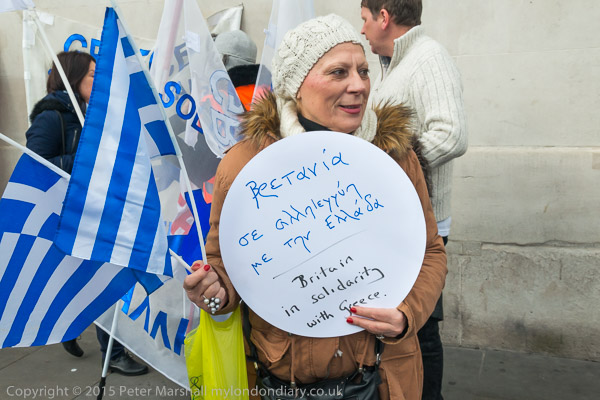 Βρετανία
σε αλληλεγγύη
με την Ελλάδα
Britain
in solidarity
with Greece.
Copyright © 2015 Peter Marshall mylondondiary.co.uk